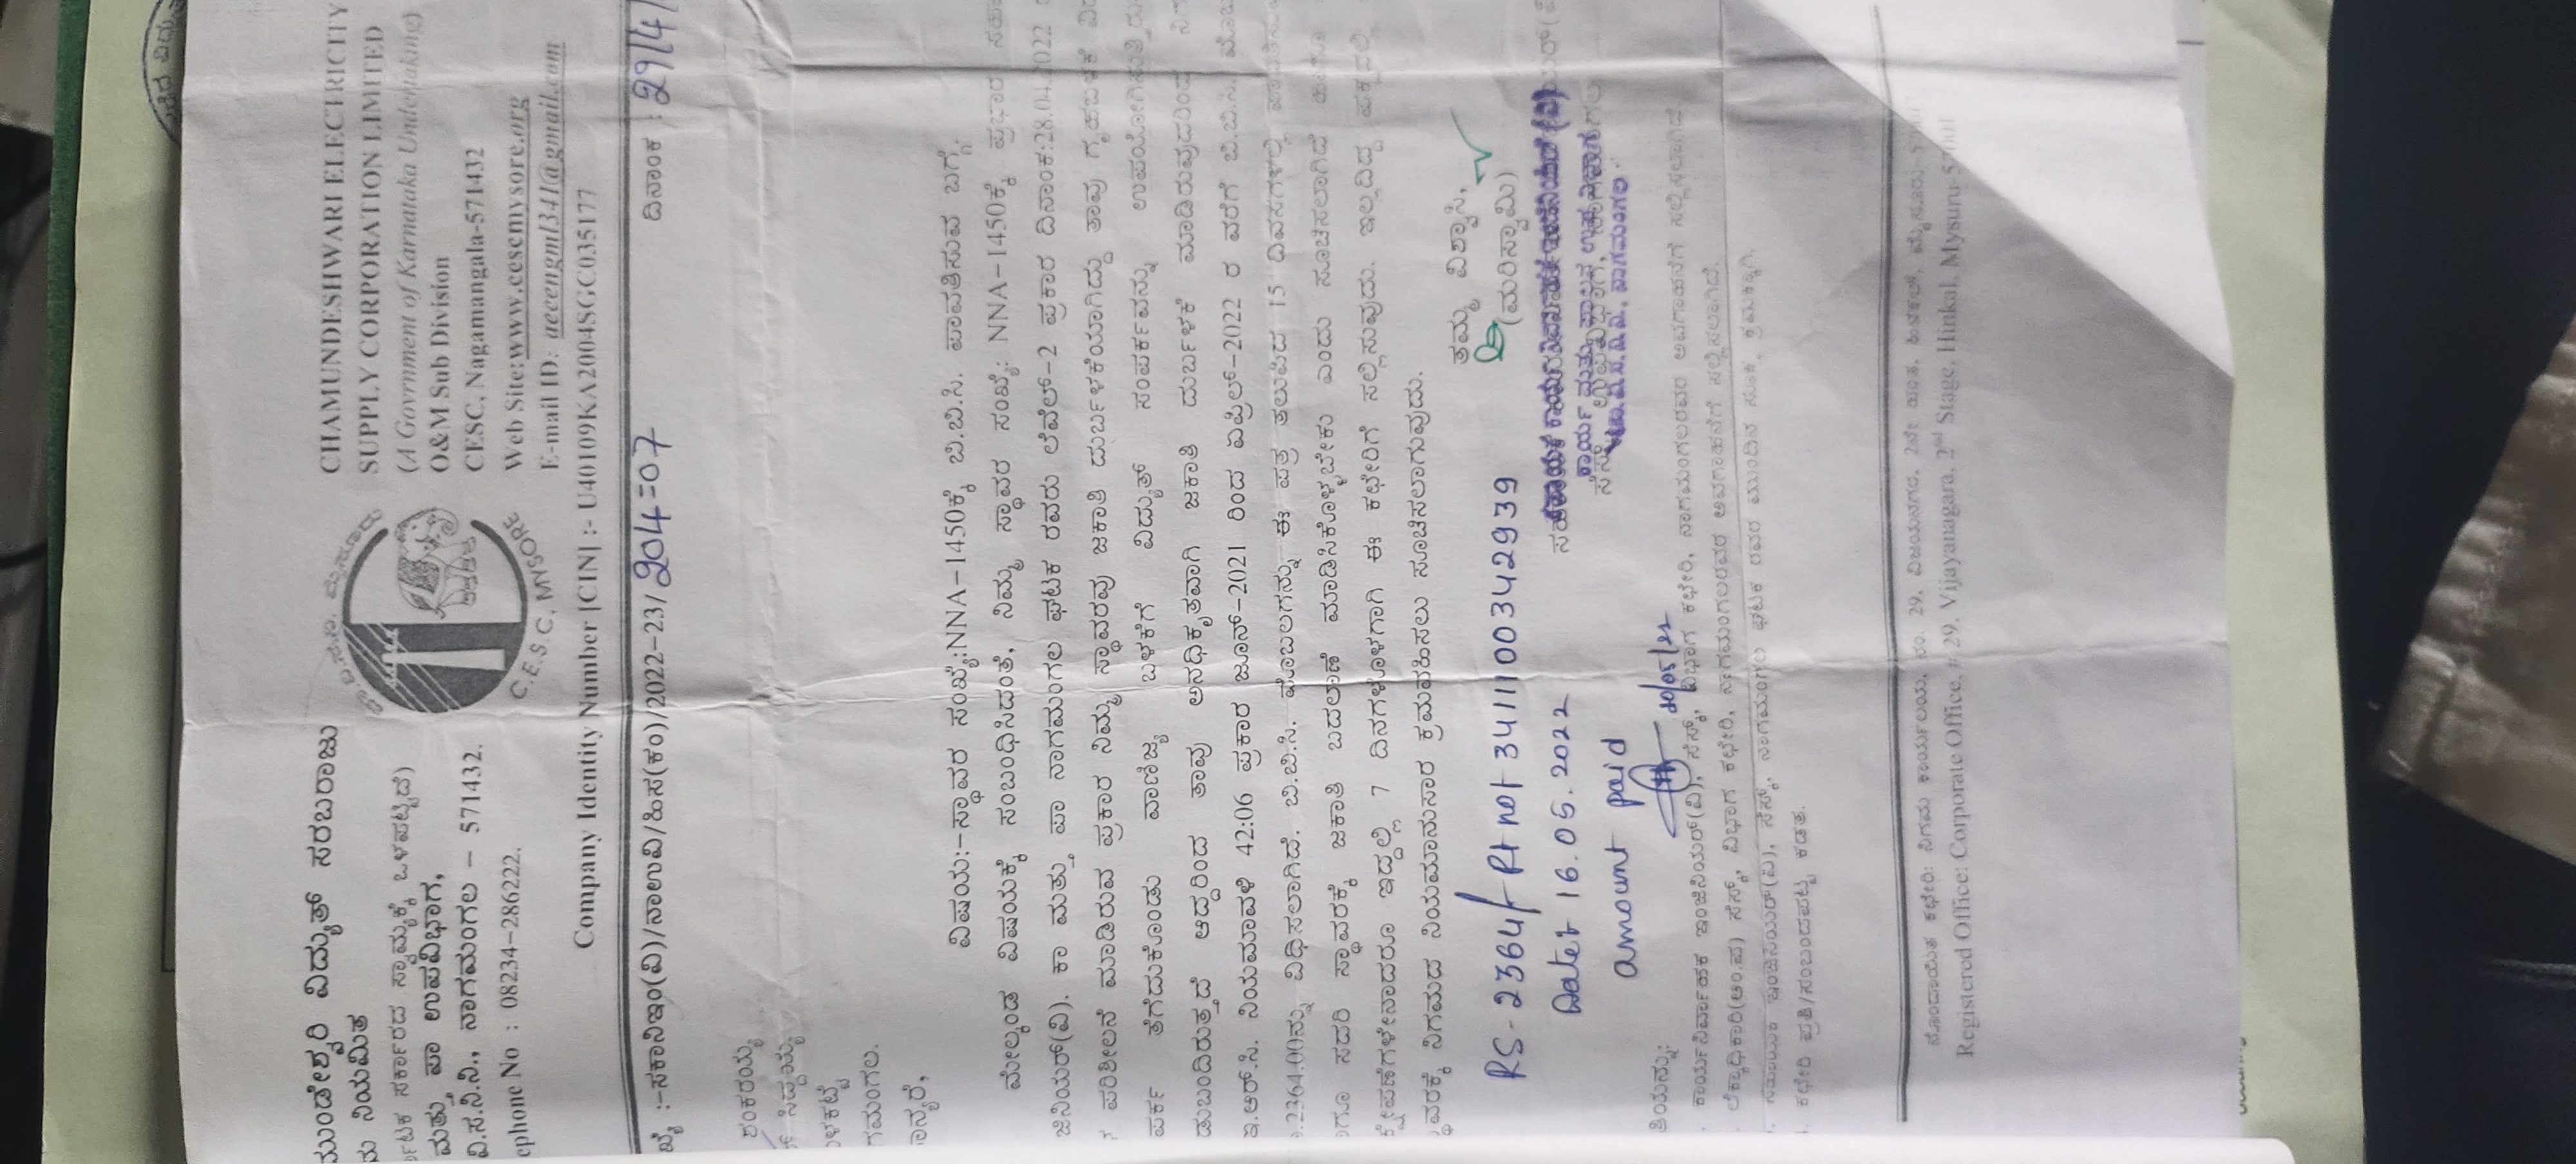 ಮುಂಡೇಶ್ವರಿ ವಿದ್ಯುತ್ ಸರಬರಾಜು
ಮ ನಿಯಮಿತ
ರ್ನಾಟಕ ಸರ್ಕಾರದ ಸ್ವಾಮ್ಯಕ್ಕೆ ಒಳಪಟ್ಟಿದೆ)
ಮತ್ತು ಪಾ ಉಪವಿಭಾಗ,
ವಿ.ಸ.ನಿ.ನಿ., ನಾಗಮಂಗಲ – 571432.
ephone No : 08234-286222.
C.E.S.C. MYSORE
CHAMUNDESHWARI ELECTRICITY
SUPPLY CORPORATION LIMITED
(A Govrnment of Karnataka Undertaking)
O&M Sub Division
CESC, Nagamangala-571432
Web Site:www.cescmysore.org
E-mail ID: aeeengml341@gmail.com
Company Identity Number [CIN] :- U40109KA2004SGC035177
ಖ್ಯೆ :-ಸಕಾನಿಇಂ(ವಿ)/ನಾಉವಿ/ಹಿಸ(ಕಂ)/2022-23/ 204=07
ದಿನಾಂಕ : 29/4/
ಶಂಕರಯ್ಯ
ಸಿದ್ದಯ್ಯ
ಳಕಟ್ಟೆ
ಗಮಂಗಲ.
ಾನ್ಯರೆ,
ವಿಷಯ:-ಸ್ಥಾವರ ಸಂಖ್ಯೆ:NNA-1450ಕ್ಕೆ ಬಿ.ಬಿ.ಸಿ. ಪಾವತಿಸುವ ಬಗ್ಗೆ.
ಮೇಲ್ಕಂಡ ವಿಷಯಕ್ಕೆ ಸಂಬಂಧಿಸಿದಂತೆ, ನಿಮ್ಮ ಸ್ಥಾವರ ಸಂಖ್ಯೆ: NNA-1450ಕ್ಕೆ ಪ್ರಭಾರ ಸಹಾ
ಜಿನಿಯರ್(ವಿ). ಕಾ ಮತ್ತು ಪಾ ನಾಗಮಂಗಲ ಘಟಕ ರವರು ಲೆವೆಲ್-2 ಪ್ರಕಾರ ದಿನಾಂಕ:28.04.2022
ಪರಿಶೀಲನೆ ಮಾಡಿರುವ ಪ್ರಕಾರ ನಿಮ್ಮ ಸ್ಥಾವರವು ಜಕಾತಿ ದುರ್ಬಳಕೆಯಾಗಿದ್ದು ತಾವು ಗೃಹಬಳಕೆ
ಪರ್ಕ ತೆಗೆದುಕೊಂಡು ವಾಣಿಜ್ಯ ಬಳಕೆಗೆ ವಿದ್ಯುತ್ ಸಂಪರ್ಕವನ್ನು ಉಪಯೋಗಿಸುತ್ತಿರು
ಡುಬಂದಿರುತ್ತದೆ ಆದ್ದರಿಂದ ತಾವು ಅನಧಿಕೃತವಾಗಿ ಜಕಾತಿ ದುರ್ಬಳಕೆ ಮಾಡಿರುವುದರಿಂದ
ಇ.ಆರ್.ಸಿ. ನಿಯಮಾವಳಿ 42:06 ಪ್ರಕಾರ ಜೂನ್-2021 ರಿಂದ ಏಪ್ರಿಲ್-2022 ರ ವರೆಗೆ ಬಿ.ಬಿ.ಸಿ. ಮೊಬ
.2364.00ನ್ನು ವಿಧಿಸಲಾಗಿದೆ. ಬಿ.ಬಿ.ಸಿ. ಮೊಬಲಗನ್ನು ಈ ಪತ್ರ ತಲುಪಿದ 15 ದಿವಸಗಳಲ್ಲಿ
ಾಗೂ ಸದರಿ ಸ್ಥಾವರಕ್ಕೆ ಜಕಾತಿ ಬದಲಾವಣೆ ಮಾಡಿಸಿಕೊಳ್ಳಬೇಕು ಎಂದು ಸೂಚಿಸಲಾಗಿದೆ
ಕ್ಷೇಪಣೆಗಳೇನಾದರೂ ಇದ್ದಲ್ಲಿ 7 ದಿನಗಳೊಳಗಾಗಿ ಈ ಕಛೇರಿಗೆ ಸಲ್ಲಿಸುವುದು. ಇಲ್ಲದಿದ್ದ ಪಕ್ಷದಲ್ಲಿ
್ಥಾವರಕ್ಕೆ ನಿಗಮದ ನಿಯಮಾನುಸಾರ ಕ್ರಮವಹಿಸಲು ಸೂಚಿಸಲಾಗುವುದು.
ತಮ್ಮ ವಿಶ್ವಾಸಿ,
(ಮರಿಸ್ವಾಮಿ)
RS-2364/- Rt no: 34111003429 39
Date: 16.05.2022
amount paid
20/05/22
ಕಾರ್ಯ ಮತ್ತು ಪಾಲನೆ ಉಪ ವಿಭಾಗ
ನಾಗಮಂಗಲ.
ಕಾರ್ಯನಿರ್ವಾಹಕ ಇಂಜಿನಿಯರ್(ವಿ), ಸೆಸ್ಕ್, ವಿಭಾಗ ಕಛೇರಿ, ನಾಗಮಂಗಲರವರ ಅವಗಾಹನೆಗೆ ಸಲ್ಲಿಸಲಾಗಿದೆ
ಲೆಕ್ಕಾಧಿಕಾರಿ(ಆಂ.ಪ) ಸೆಸ್ಕ್, ವಿಭಾಗ ಕಛೇರಿ, ನಾಗಮಂಗಲರವರ ಅವಗಾಹನೆಗೆ ಸಲ್ಲಿಸಲಾಗಿದೆ.
ಸಹಾಯಕ ಇಂಜಿನಿಯರ್(ವಿ), ಸೆಸ್ಕ್, ನಾಗಮಂಗಲ ಘಟಕ ರವರ ಮುಂದಿನ ಸೂಕ್ತ ಕ್ರಮಕ್ಕಾಗಿ.
ಕಛೇರಿ ಪ್ರತಿ/ಸಂಬಂದಪಟ್ಟ ಕಡತ.
ನೊಂದಾಯಿತ ಕಛೇರಿ: ನಿಗಮ ಕಾರ್ಯಾಲಯ, ನಂ. 29, ವಿಜಯನಗರ, 2ನೇ ಹಂತ, ಹಿನಕಲ್, ಮೈಸೂರು
Registered Office: Corporate Office, # 29, Vijayanagara, 2nd Stage, Hinkal, Mysuru